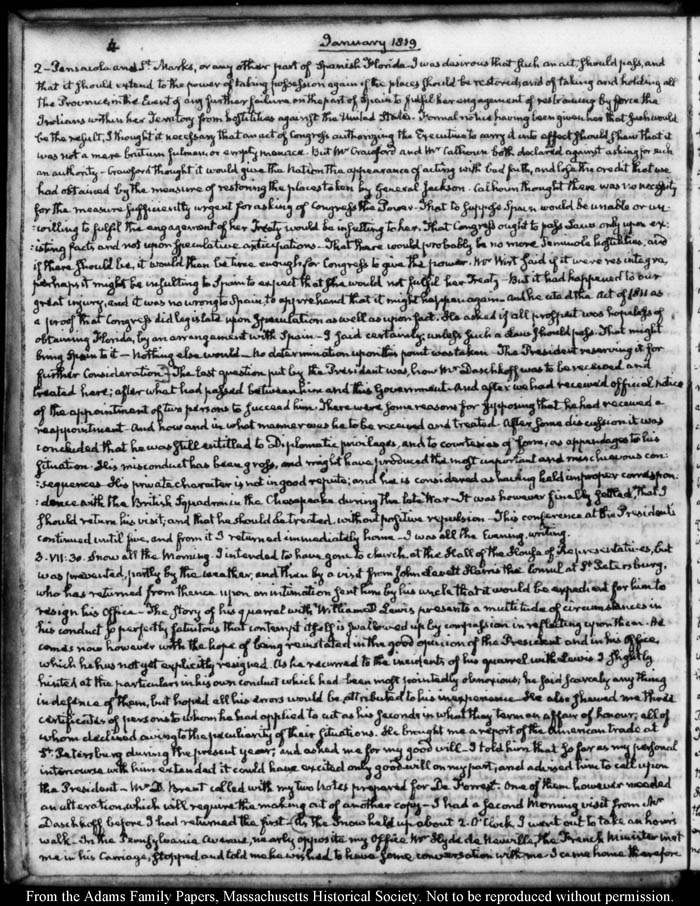 4
January 1819
2 - Pensacola and St. Marks, or any other part of Spanish Florida. I was desirous that such an act should pass, and
that it should extend to the power of taking possession again if the places should be restored; and of taking and holding all
the Province, in the Event of any further failure on the part of Spain to fulfil her engagement of restraining by force the
Indians within her Territory from hostilities against the United States. Formal notice having been given her that such would
be the result, I thought it necessary that an act of Congress authorizing the Executive to carry it into effect should shew that it
was not a mere brutum fulmen, or empty menace. But Mr Crawford and Mr Calhoun both declared against asking for such
an authority - Crawford thought it would give the Nation the appearance of acting with bad faith, and lose the credit that we
had obtained by the measure of restoring the places taken by General Jackson. Calhoun thought there was no necessity
for the measure sufficiently urgent for asking of Congress the Power. That to suppose Spain would be unable or un-
:willing to fulfil the engagement of her Treaty would be insulting to her. That Congress ought to pass Laws only upon ex-
:isting facts and not upon speculative anticipations. That there would probably be no more Seminole hostilities, and
if there should be, it would then be time enough for Congress to give the power. Mr Wirt said if it were res integra,
perhaps it might be insulting to Spain to expect that she would not fulfil her Treaty - But it had happened to our
great injury, and it was no wrong to Spain, to apprehend that it might happen again. And he cited the Act of 1811 as
a proof that Congress did legislate upon speculation as well as upon fact. He asked if all prospect was hopeless of
obtaining Florida, by an arrangement with Spain - I said certainly; unless such a Law should pass. That might
bring Spain to it - Nothing else would - No determination upon this point was taken - The President reserving it for
further Consideration. The last question put by the President was, how Mr Daschkoff was to be received and
treated here; after what had passed between him and this Government - And after we had received official notice
of the appointment of two persons to succeed him. There were some reasons for supposing that he had received a
reappointment. And how and in what manner was he to be received and treated. After some discussion it was
concluded that he was still entitled to Diplomatic privileges, and to courtesies of form, as appendages to his
situation. His misconduct has been gross, and might have produced the most important and mischievous con-
:sequences. His private character is not in good repute; and he is considered as having held improper correspon-
:dence with the British Squadron in the Chesapeake during the late War - It was however finally settled that I
should return his visit; and that he should be treated without positive repulsion - This conference at the President's
continued till five, and from it I returned immediately home - I was all the Evening writing.
3. VII:30. Snow all the Morning. I intended to have gone to church, at the Hall of the House of Representatives, but
was prevented, partly by the weather, and then by a visit from John Levett Harris the Consul at St. Petersburg,
who has returned from thence upon an intimation sent him by his uncle that it would be expedient for him to
resign his Office - The story of his quarrel with William D Lewis presents a multitude of circumstances in
his conduct so perfectly fatuitous that contempt itself is swallowed up by compassion in reflecting upon them. He
comes now however with the hope of being reinstated in the good opinion of the President and in his Office,
which he has not yet explicitly resigned. As he recurred to the incidents of his quarrel with Lewis I slightly
hinted at the particulars in his own conduct which had been most pointedly obnoxious; he said scarcely any thing
in defence of them, but hoped all his errors would be attributed to his inexperience - He also shewed me three
certificates of persons to whom he had applied to act as his seconds in what they term an affair of honour; all of
whom declined owing to the peculiarity of their situations. He brought me a report of the American trade at
St. Petersburg during the present year; and asked me for my good will - I told him that so far as my personal
intercourse with him extended it could have excited only good will on my part; and advised him to call upon
the President - Mr D. Brent called with my two Notes prepared for De Forrest. One of them however needed
an alteration, which will require the making out of another copy - I had a second Morning visit from Mr
Daschkoff before I had returned the first - As the Snow held up about 2. O'Clock I went out to take an hour's
walk - In the Pennsylvania Avenue, nearly opposite my Office Mr Hyde de Neuville, the French Minister met
me in his Carriage, stopped and told me he wished to have some conversation with me. I came home therefore
From the Adams Family Papers, Massachusetts Historical Society. Not to be reproduced without permission.